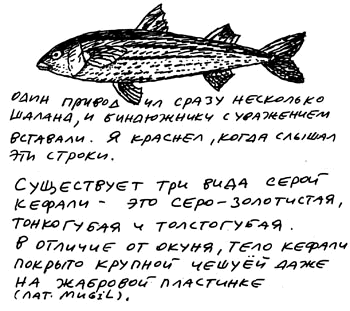 один привод ил сразу несколько
шаланд, и биндюжники с уважением
вставали. Я краснел, когда слышал
эти строки.
Существует три вида серой
кефали - это серо-золотистая,
тонкогубая и толстогубая.
В отличие от окуня, тело кефали
покрыто крупной чешуёй даже
на жабровой пластинке
(лат. Mugil).